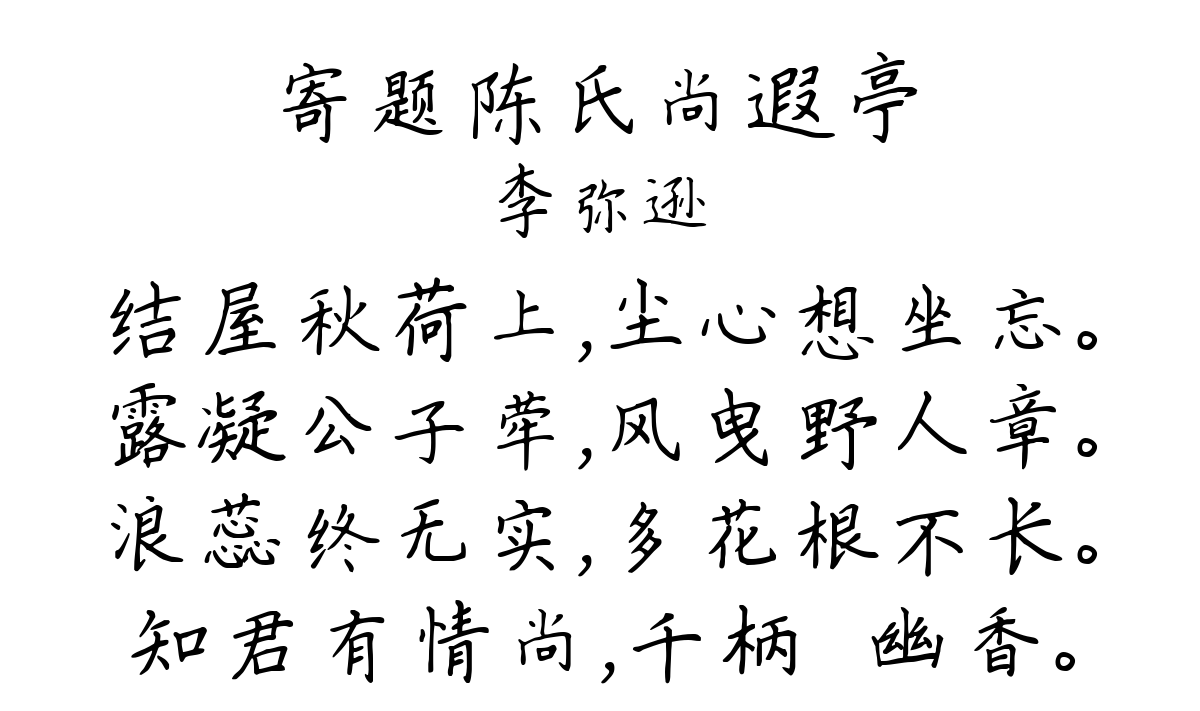 寄题陈氏尚遐亭
李弥逊
结屋秋荷上,尘心想坐忘。
露凝公子荦,风曳野人章。
浪蕊终无实,多花根不长。
知君有情尚,千柄 幽香。